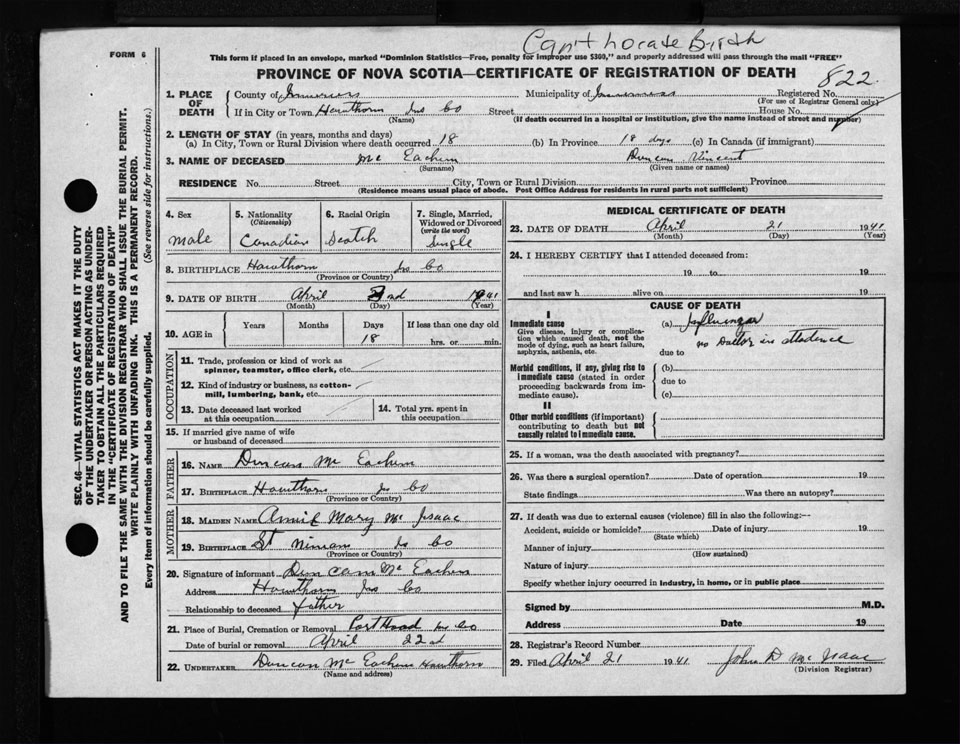 Can't locate Birth
FORM 6
This form if placed in an envelope, marked "Dominion Statistics—Free, penalty for improper use $300," and properly addressed will pass through the mail "FREE"
PROVINCE OF NOVA SCOTIA—CERTIFICATE OF REGISTRATION OF DEATH
822
1. PLACE OF DEATH
County of Inverness Municipality of Inverness Registered No.
(For use of Registrar General only)
If in City or Town Hawthorn Ins Co Street House No.
(Name) (If death occurred in a hospital or institution, give the name instead of street and number)
2. LENGTH OF STAY (in years, months and days)
(a) In City, Town or Rural Division where death occurred 18 (b) In Province 18 days (c) In Canada (if immigrant)
3. NAME OF DECEASED Mc Eachern Duncan Vincent
(Surname) (Given name or names)
RESIDENCE No. Street City, Town or Rural Division Province
(Residence means usual place of abode. Post Office Address for residents in rural parts not sufficient)
4. Sex 5. Nationality (Citizenship) 6. Racial Origin 7. Single, Married, Widowed or Divorced (write the word)
Male Canadian Scotch Single
8. BIRTHPLACE Hawthorn Ins Co
(Province or Country)
9. DATE OF BIRTH April 2nd 1941
(Month) (Day) (Year)
10. AGE in Years Months Days If less than one day old
18 hrs. or min.
OCCUPATION
11. Trade, profession or kind of work as spinner, teamster, office clerk, etc.
12. Kind of industry or business, as cotton-mill, lumbering, bank, etc.
13. Date deceased last worked at this occupation 14. Total yrs. spent in this occupation
15. If married give name of wife or husband of deceased
FATHER
16. NAME Duncan Mc Eachern
17. BIRTHPLACE Hawthorn Ins Co
(Province or Country)
MOTHER
18. MAIDEN NAME Annie Mary Mc Isaac
19. BIRTHPLACE St Ninian Is Co
(Province or Country)
20. Signature of informant Duncan Mc Eachern
Address Hawthorn Ins Co
Relationship to deceased father
21. Place of Burial, Cremation or Removal Port Hood Inv Co
Date of burial or removal April 22nd
22. UNDERTAKER Duncan Mc Eachern Hawthorn
(Name and address)
MEDICAL CERTIFICATE OF DEATH
23. DATE OF DEATH April 21 1941
(Month) (Day) (Year)
24. I HEREBY CERTIFY that I attended deceased from:
19 to 19
and last saw h alive on 19
CAUSE OF DEATH
I
Immediate cause
Give disease, injury or complication which caused death, not the mode of dying, such as heart failure, asphyxia, asthenia, etc.
(a) Influenza
no Doctor in attendence
due to
Morbid conditions, if any, giving rise to immediate cause (stated in order proceeding backwards from immediate cause).
(b)
due to
(c)
II
Other morbid conditions (if important) contributing to death but not causally related to immediate cause.
25. If a woman, was the death associated with pregnancy?
26. Was there a surgical operation? Date of operation 19
State findings Was there an autopsy?
27. If death was due to external causes (violence) fill in also the following:—
Accident, suicide or homicide? Date of injury 19
(State which)
Manner of injury
(How sustained)
Nature of injury
Specify whether injury occurred in industry, in home, or in public place
Signed by M.D.
Address Date 19
28. Registrar's Record Number
29. Filed April 21 1941 John D Mc Isaac
(Division Registrar)
SEC. 46—VITAL STATISTICS ACT MAKES IT THE DUTY
OF THE UNDERTAKER OR PERSON ACTING AS UNDER-
TAKER TO OBTAIN ALL THE PARTICULARS REQUIRED
IN THE "CERTIFICATE OF REGISTRATION OF DEATH"
AND TO FILE THE SAME WITH THE DIVISION REGISTRAR WHO SHALL ISSUE THE BURIAL PERMIT.
WRITE PLAINLY WITH UNFADING INK. THIS IS A PERMANENT RECORD.
Every item of information should be carefully supplied. (See reverse side for instructions.)